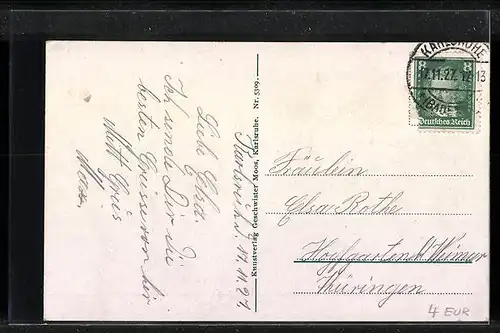 Karlsruhe, 17.11.27.
Liebe Elsa.
Ich sende Dir die
besten Grüsse von hier
Mit Grus
Max
Kunstverlag Geschwister Moos, Karlsruhe. Nr. 5599.
KARLSRUHE
17.11.27. 12-13
(BADEN)
8 8
Deutsches Reich
Fräulein
Elsa Rothe
Weimar
Thüringen
4 EUR